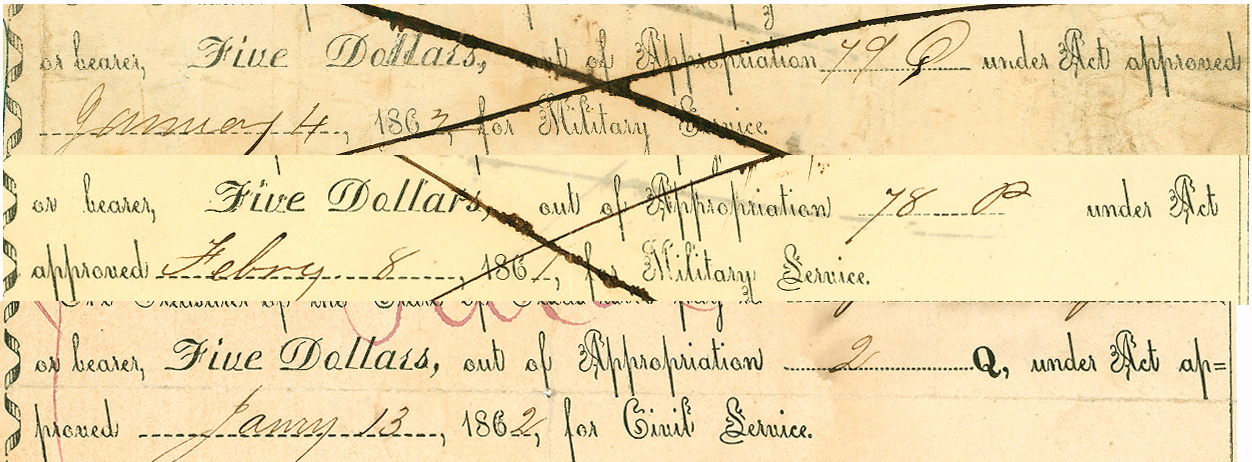 or bearer, Five Dollars, out of Appropriation 79 Q under Act approved
January 4, 1862, for Military Service.
or bearer, Five Dollars, out of Appropriation 78 P under Act
approved Febry 8, 1861, for Military Service.
the Treasurer of the State of
or bearer, Five Dollars, out of Appropriation 2 Q, under Act ap=
proved Janry 13, 1862, for Civil Service.